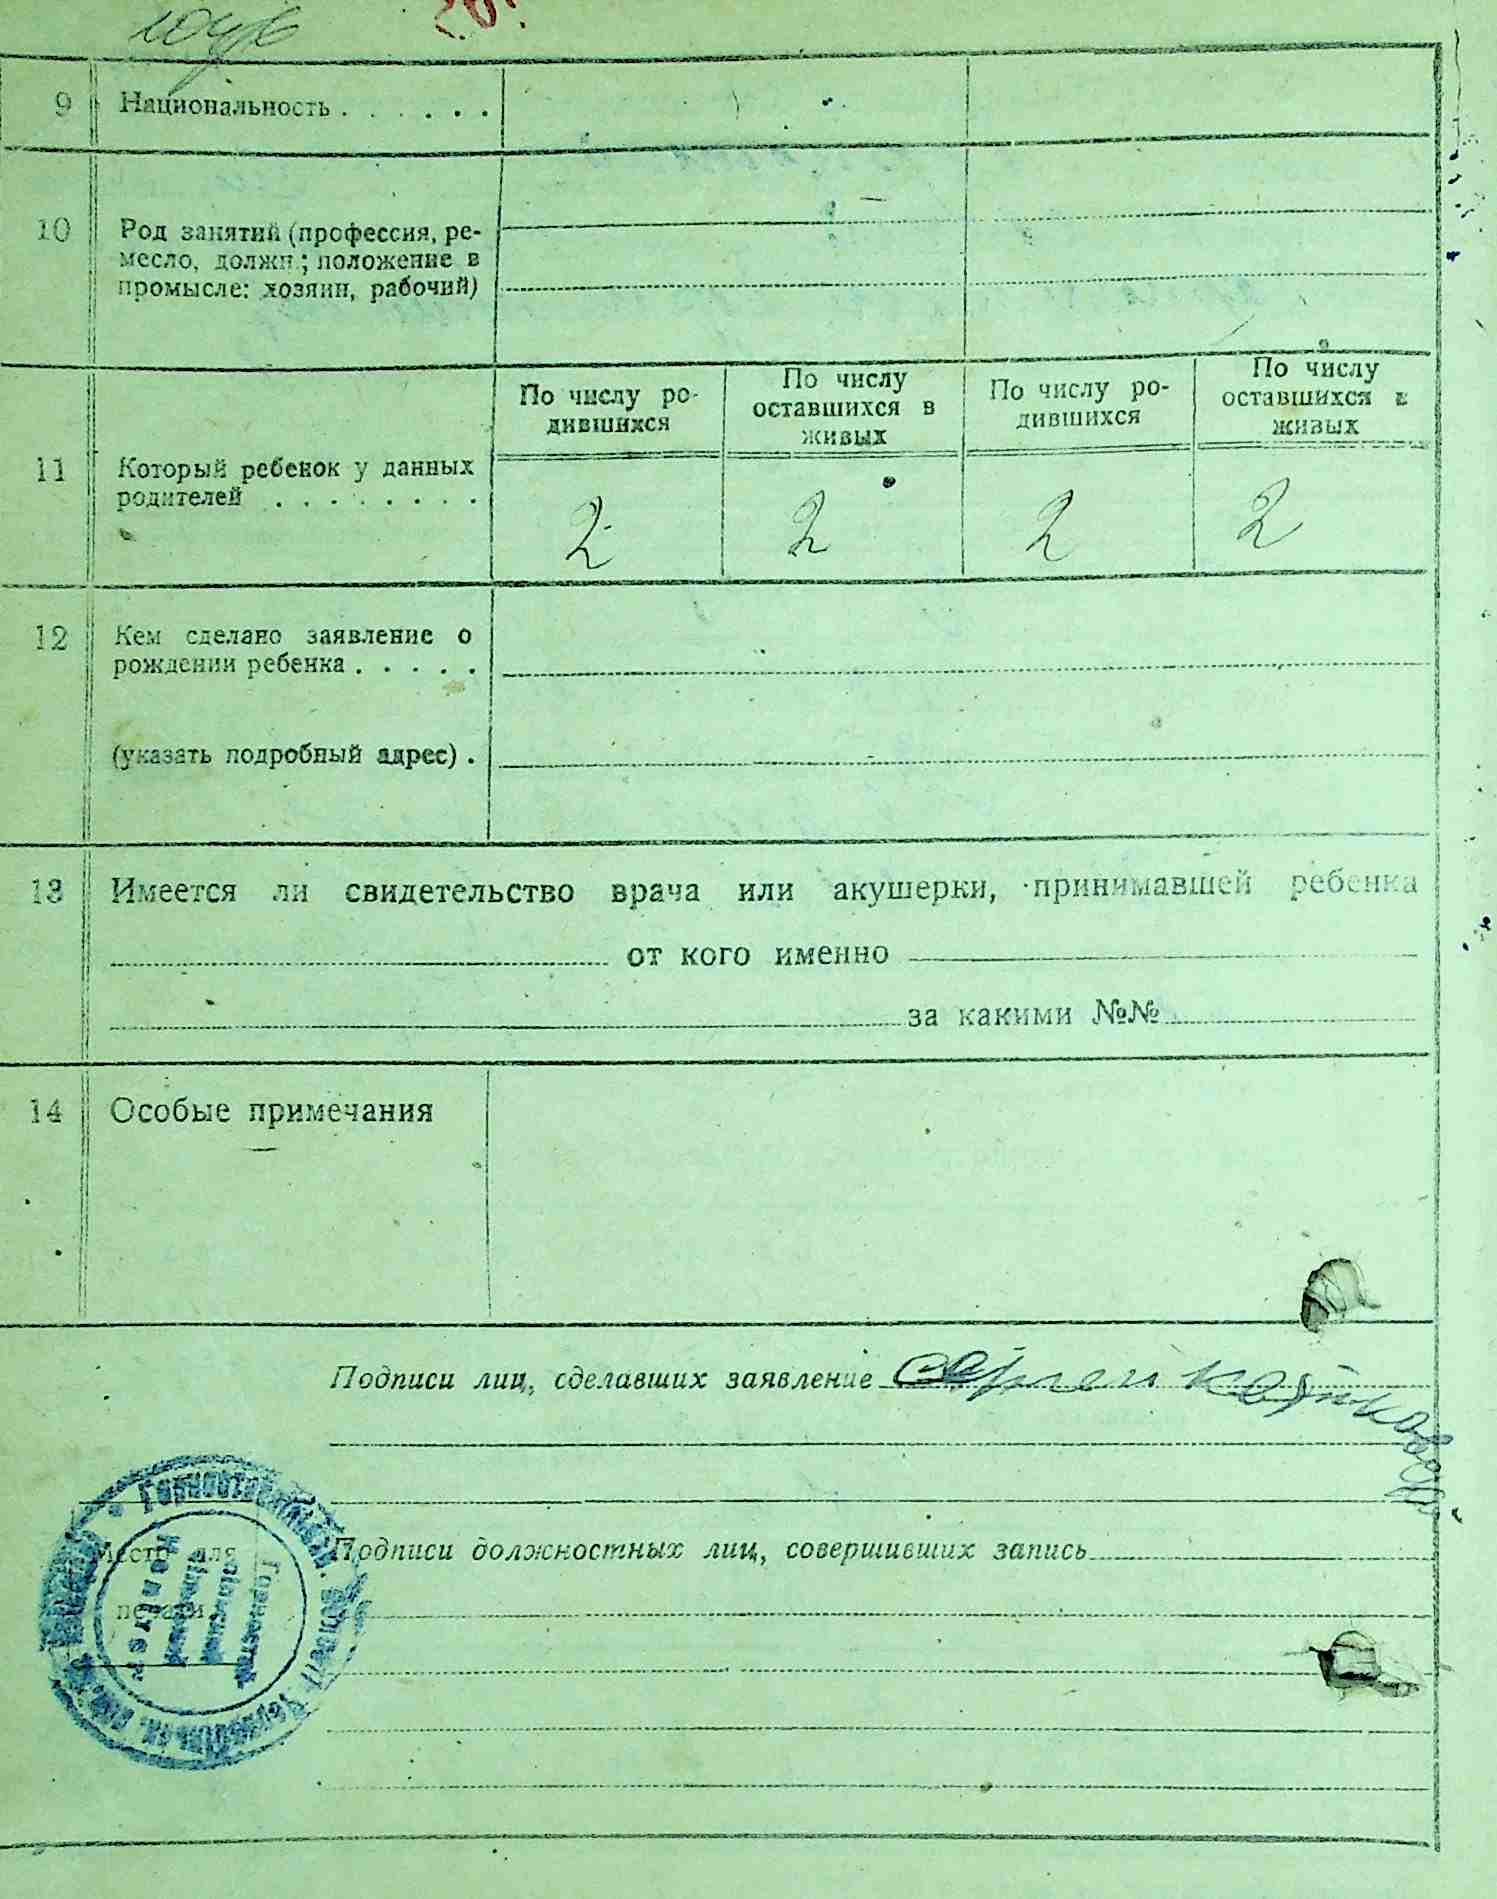 9 Национальность . . . . . .
10 Род занятий (профессия, ре-
месло, должн.; положение в
промысле: хозяин, рабочий)
По числу ро-
дившихся
По числу
оставшихся в
живых
По числу ро-
дившихся
По числу
оставшихся в
живых
11 Который ребенок у данных
родителей . . . . . . . .
2 2 2 2
12 Кем сделано заявление о
рождении ребенка . . . . .
(указать подробный адрес) .
13 Имеется ли свидетельство врача или акушерки, принимавшей ребенка
от кого именно
за какими №№
14 Особые примечания
Подписи лиц, сделавших заявление
Подписи должностных лиц, совершивших запись
Место для
печати